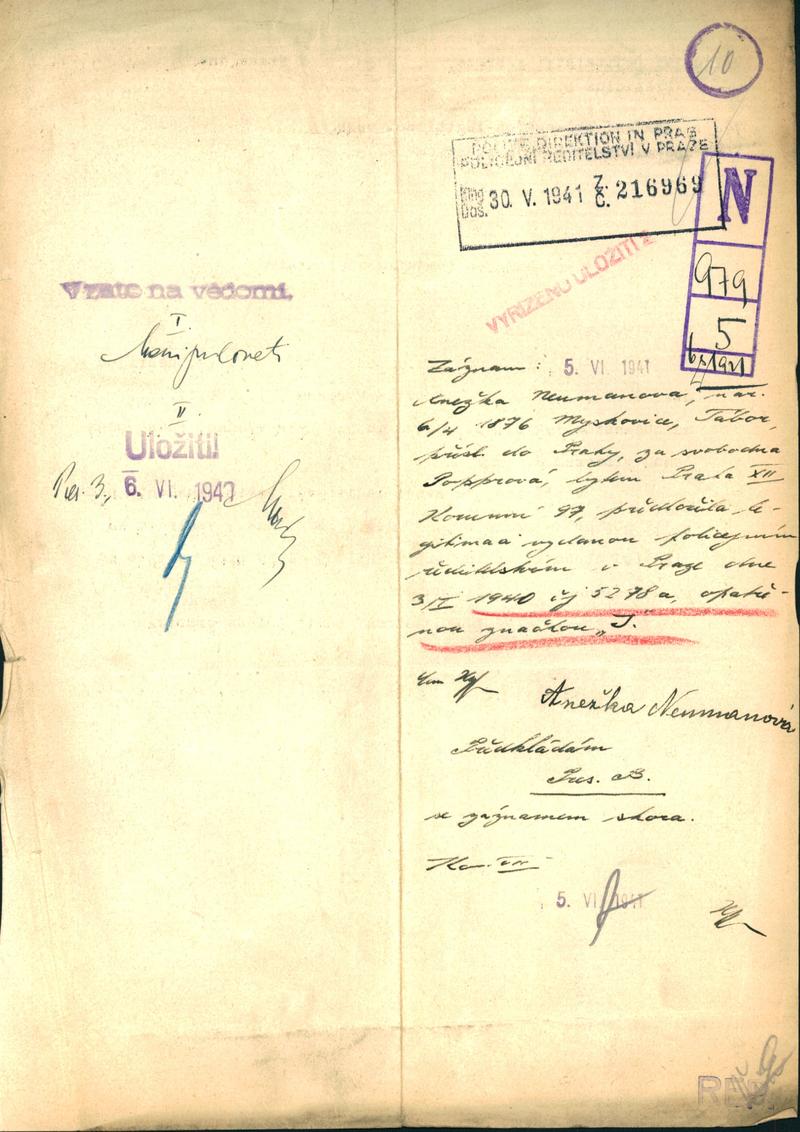 10
POLIZEIDIREKTION IN PRAG
POLICEJNÍ ŘEDITELSTVÍ V PRAZE
Eing.
Doš. 30. V. 1941 Z. Č. 216969
N
979
5
VYŘÍZENO ULOŽITI
Vzato na vědomí.
I.
Manipulovati
II.
Uložiti!
Pres. 3., 6. VI. 1941
Záznam: 5. VI. 1941
Anežka Neumanová, nar.
6/4 1876 Myskovice, Tábor,
přísl. do Prahy, za svobodna
Popprová, bytem Praha XII
Korunní 97, předložila le-
gitimaci vydanou policejním
ředitelstvím v Praze dne
1940 čj 5278 a, opatře-
nou značkou „J.
Anežka Neumanová
Předkládám
Pres.
se záznamem shora.
5. VI. 1941